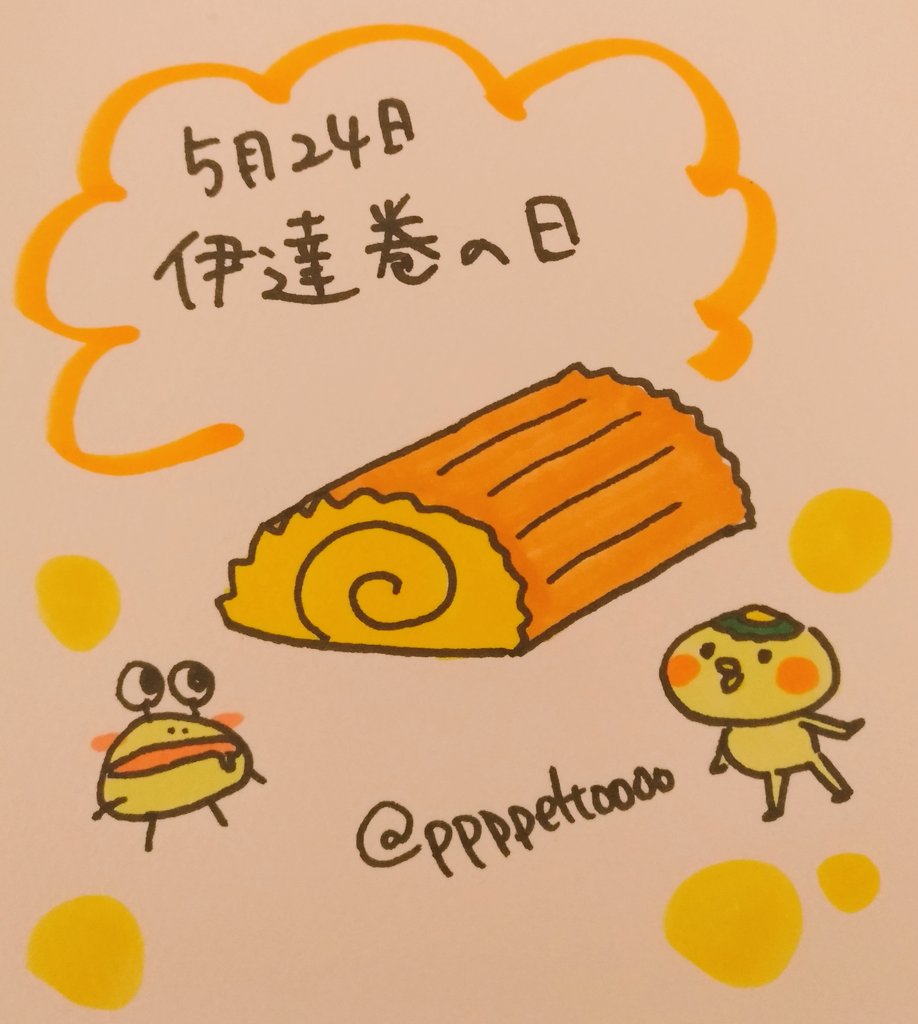 5月24日
伊達巻の日
@ppppettoooo